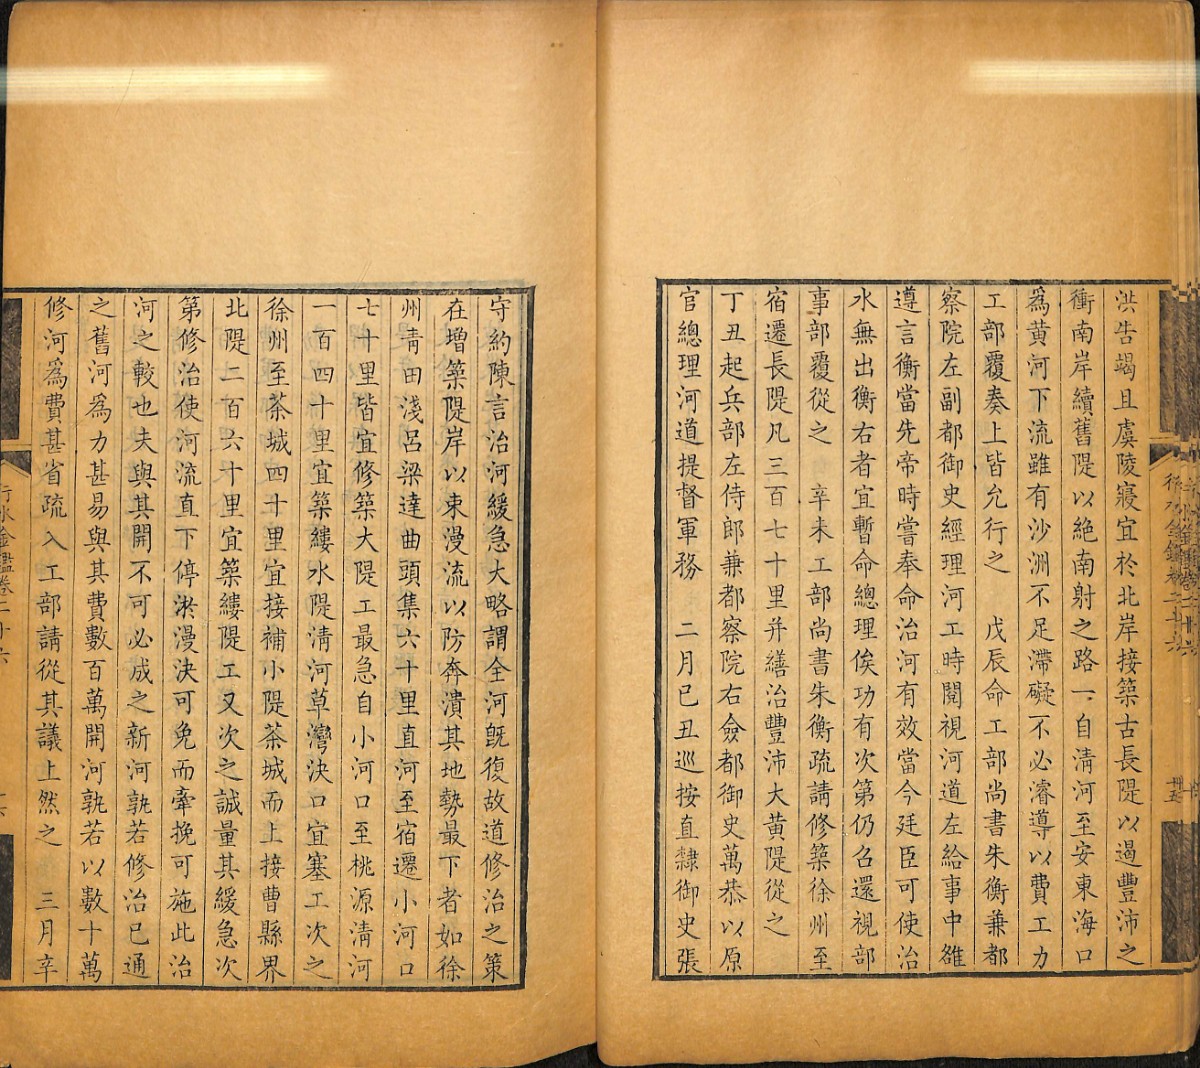 洪告竭且虞陵寢宜於北岸接築古長隄以遏豐沛之
衝南岸續舊隄以絶南射之路一自清河至安東海口
爲黄河下流雖有沙洲不足滯礙不必濬導以費工力
工部覆奏上皆允行之 戊辰命工部尚書朱衡兼都
察院左副都御史經理河工時閲視河道左給事中雒
遵言衡當先帝時嘗奉命治河有效當今廷臣可使治
水無出衡右者宜暫命總理俟功有次第仍召還視部
事部覆從之 辛未工部尚書朱衡疏請修築徐州至
宿遷長隄凡三百七十里并繕治豐沛大黄隄從之
丁丑起兵部左侍郎兼都察院右僉都御史萬恭以原
官總理河道提督軍務 二月己丑巡按直隸御史張
守約陳言治河緩急大略謂全河旣復故道修治之策
在增築隄岸以束漫流以防奔潰其地勢最下者如徐
州靑田淺呂梁達曲頭集六十里直河至宿遷小河口
七十里皆宜修築大隄工最急自小河口至桃源淸河
一百四十里宜築縷水隄淸河草灣決口宜塞工次之
徐州至茶城四十里宜接補小隄茶城而上接曹縣界
北隄二百六十里宜築縷隄工又次之誠量其緩急次
第修治使河流直下停淤漫決可免而牽挽可施此治
河之較也夫與其開不可必成之新河孰若修治已通
之舊河爲力甚易與其費數百萬開河孰若以數十萬
修河爲費甚省疏入工部請從其議上然之 三月辛
行水金鑑卷二十六